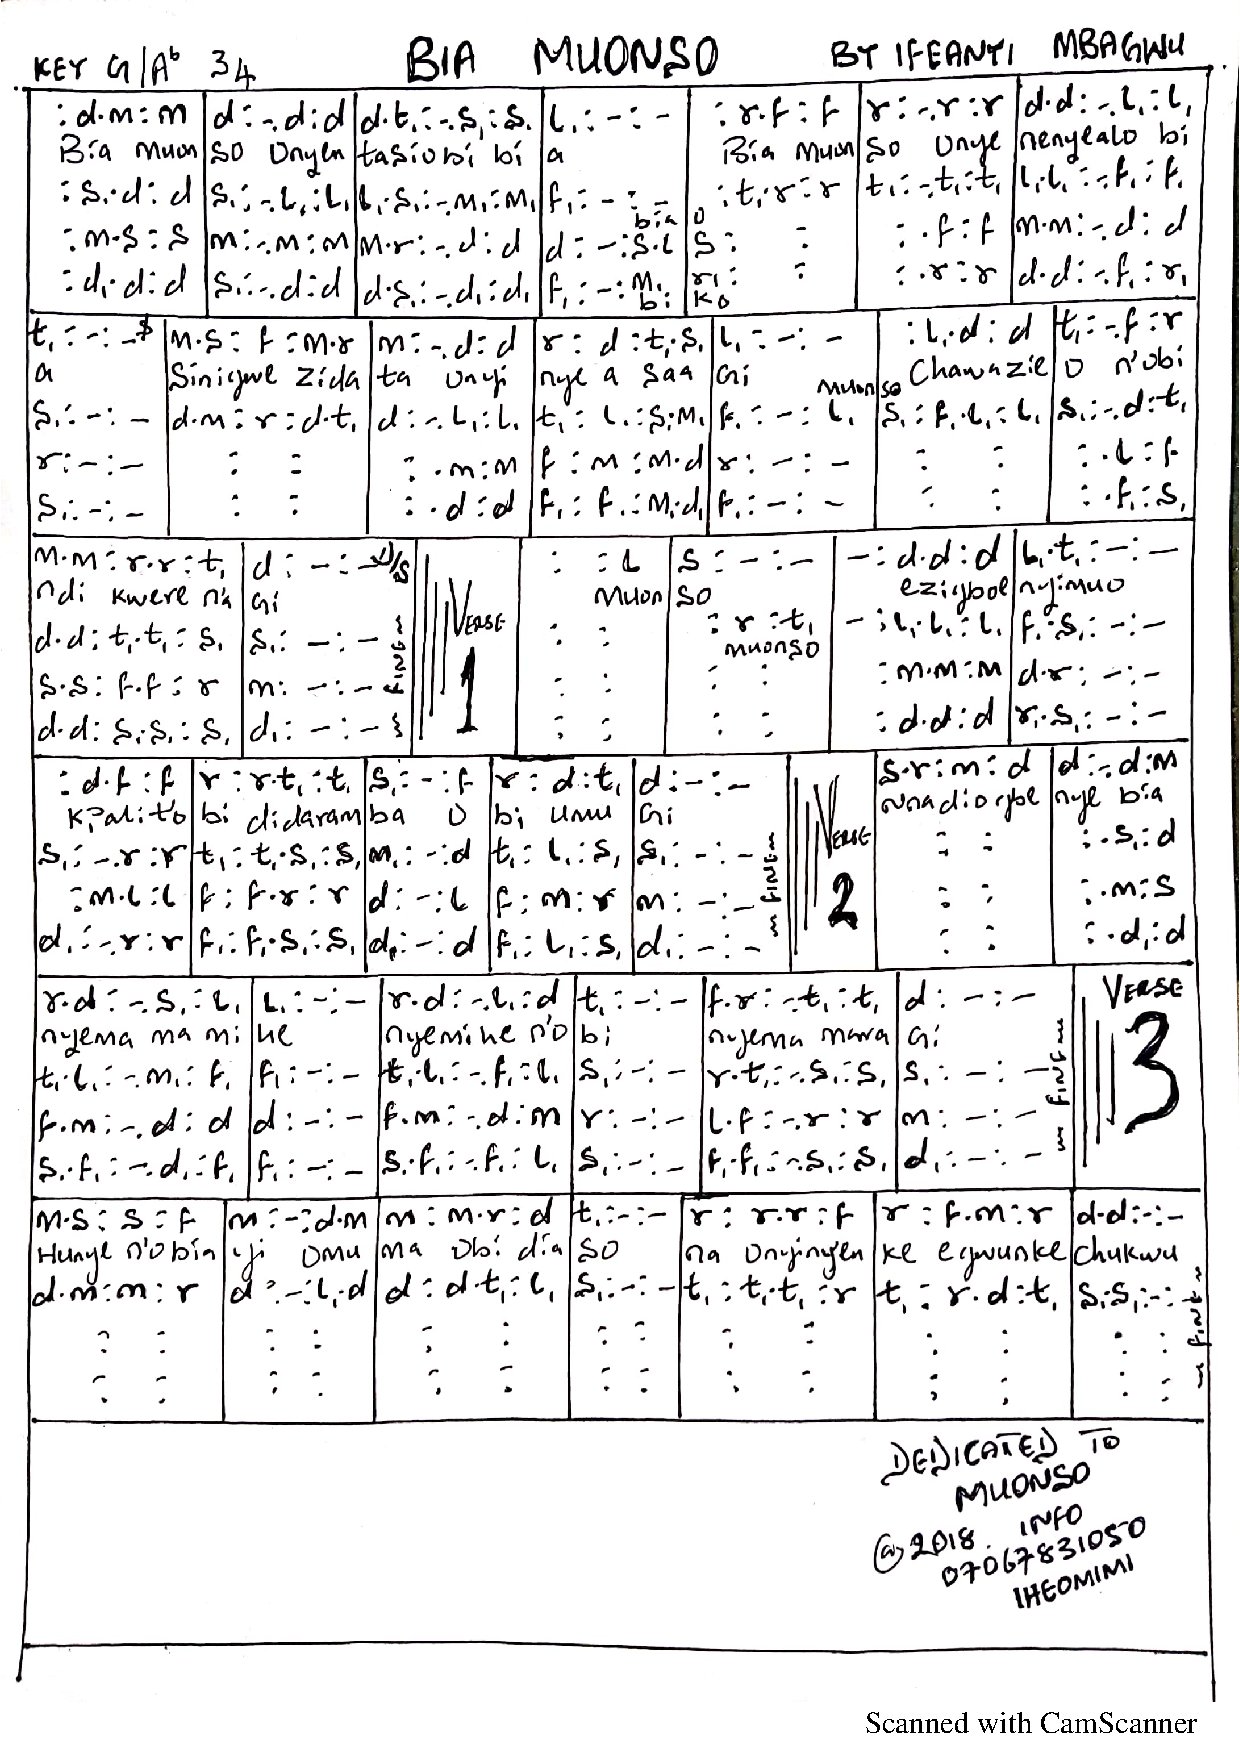 KEY G/Ab 34 BIA MUONSO BY IFEANYI MBAGWU
: d.m : m | d : -. d : d | d.t, : -. s, : s, | l, : - : - | : r.f : f | r : -. r : r | d.d : -. l, : l,
Bia Muon | so Onyen | tasiobi bi | a | Bia Muon | so Onye | nenyealo bi
: s,.d : d | s, : -. l, : l, | l,.s, : -. m, : m, | f, : - : - | : t,.r : r | t, : -. t, : t, | l,.l, : -. f, : f,
bia | o
: m.s : s | m : -. m : m | m.r : -. d : d | d : - : s.l | s : : | : . f : f | m.m : -. d : d
: d, d : d | s, : -. d : d | d.s, : -. d, : d, | f, : - : m, | r, : : | : . r : r | d.d : -. f, : r,
bi | ko
t, : - : - $ | m.s : f : m.r | m : -. d : d | r : d : t,.s, | l, : - : - | : l,.d : d | t, : -. f : r
a | Sinigwe zida | ta onyi | nye a saa | Gi | Muonso Chawazie | o n'obi
s, : - : - | d.m : r : d.t, | d : -. l, : l, | t, : l, : s,.m, | f, : - : l, | s, : f,.l, : l, | s, : -. d : t,
r : - : - | : : | : . m : m | f : m : m.d | r : - : - | : : | : . l : f
s, : - : - | : : | : . d : d | f, : f, : m,.d, | f, : - : - | : : | : . f, : s,
m.m : r.r : t, | d : - : - D/S | VERSE 1 | : : l | s : - : - | - : d.d : d | l,.t, : - : -
ndi kwere n'a | Gi | Muon | so | ezigboe | nyimuo
d.d : t,.t, : s, | s, : - : - | : : | : r : t, | - : l,.l, : l, | f,.s, : - : -
muonso
s.s : f.f : r | m : - : - | : : | : : | : m.m : m | d.r : - : -
d.d : s,.s, : s, | d, : - : - | : : | : : | : d.d : d | r,.s, : - : -
FINE
: d.f : f | r : r.t, : t, | s, : - : f | r : d : t, | d : - : - | VERSE 2 | s.r : m : d | d : -. d : m
kpalito | bi didaram | ba o | bi umu | Gi | nnadiogbe | nye bia
s, : -. r : r | t, : t,.s, : s, | m, : - : d | t, : l, : s, | s, : - : - | : : | : . s, : d
: m.l : l | f : f.r : r | d : - : l | f : m : r | m : - : - | : : | : . m : s
d, : -. r : r | f, : f,.s, : s, | d, : - : d | f, : l, : s, | d, : - : - | : : | : . d, : d
FINE
r.d : -. s, : l, | l, : - : - | r.d : -. l, : d | t, : - : - | f.r : -. t, : t, | d : - : - | VERSE 3
nyema ma mi | he | nyemihe n'o | bi | nyema mara | Gi
t,.l, : -. m, : f, | f, : - : - | t,.l, : -. f, : l, | s, : - : - | r.t, : -. s, : s, | s, : - : -
f.m : -. d : d | d : - : - | f.m : -. d : m | r : - : - | l.f : -. r : r | m : - : -
s,.f, : -. d, : f, | f, : - : - | s,.f, : -. f, : l, | s, : - : - | f,.f, : -. s, : s, | d, : - : -
FINE
m.s : s : f | m : - : d.m | m : m.r : d | t, : - : - | r : r.r : f | r : f.m : r | d.d : - : -
Hunye n'obia | yi omu | ma obi dia | so | na onyinyen | ke egwunke | Chukwu
d.m : m : r | d : - : l,.d | d : d.t, : l, | s, : - : - | t, : t,.t, : r | t, : r.d : t, | s,.s, : - : -
: : | : : | : : | : : | : : | : : | : :
: : | : : | : : | : : | : : | : : | : :
FINE
DEDICATED TO
MUONSO
@2018. INFO
07067831050
IHEOMIMI
Scanned with CamScanner